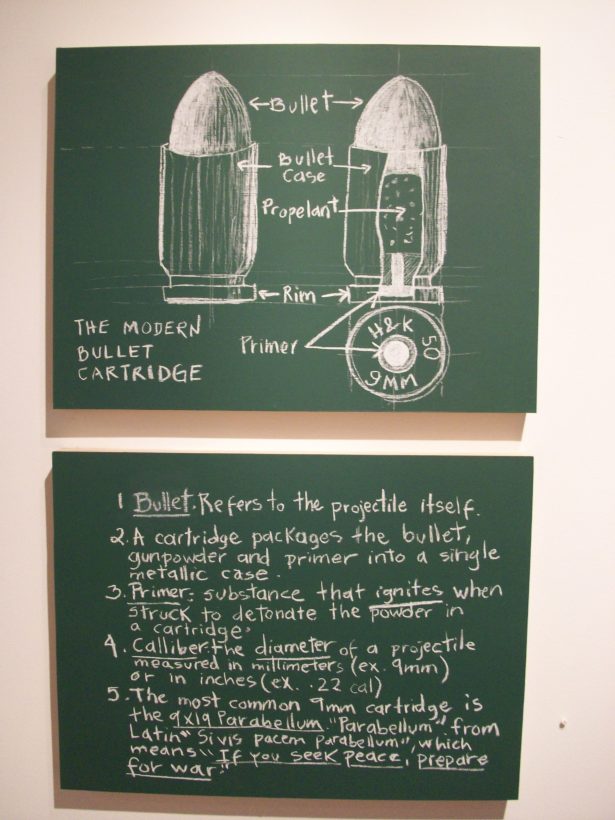 Bullet
Bullet
Case
Propelant
Rim
Primer
H&K
50
9MM
THE MODERN
BULLET
CARTRIDGE
1 Bullet. Refers to the projectile itself.
2. A cartridge packages the bullet,
gunpowder and primer into a single
metallic case.
3. Primer: substance that ignites when
struck to detonate the powder in
a cartridge.
4. Calliber: the diameter of a projectile
measured in millimeters (ex. 9mm)
or in inches (ex. .22 cal)
5. The most common 9mm cartridge is
the 9x19 Parabellum. "Parabellum" from
Latin "Sivis pacem parabellum", which
means "If you seek peace, prepare
for war."